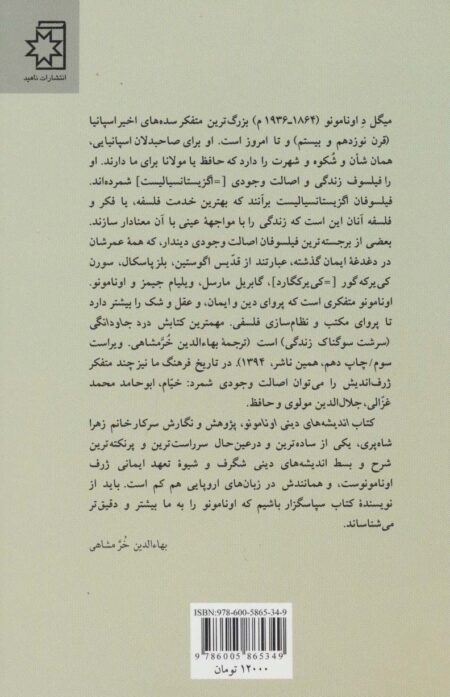 انتشارات ناهید
میگل دِ اونامونو (۱۸۶۴ـ۱۹۳۶ م) بزرگ‌ترین متفکر سده‌های اخیر اسپانیا
(قرن نوزدهم و بیستم) و تا امروز است. او برای صاحبدلان اسپانیایی،
همان شأن و شُکوه و شهرت را دارد که حافظ یا مولانا برای ما دارند. او
را فیلسوف زندگی و اصالت وجودی [=اگزیستانسیالیست] شمرده‌اند.
فیلسوفان اگزیستانسیالیست برآنند که بهترین خدمت فلسفه، یا فکر و
فلسفه آنان این است که زندگی را با مواجههٔ عینی با آن معنادار سازند.
بعضی از برجسته‌ترین فیلسوفان اصالت وجودی دیندار، که همهٔ عمرشان
در دغدغهٔ ایمان گذشته، عبارتند از قدّیس اگوستین، بلز پاسکال، سورن
کی‌یرکه‌گور [=کی‌یرکگارد]، گابریل مارسل، ویلیام جیمز و اونامونو.
اونامونو متفکری است که پروای دین و ایمان، و عقل و شک را بیشتر دارد
تا پروای مکتب و نظام‌سازی فلسفی. مهمترین کتابش درد جاودانگی
(سرشت سوگناک زندگی) است (ترجمهٔ بهاءالدین خُرّمشاهی. ویراست
سوم/چاپ دهم، همین ناشر، ۱۳۹۴). در تاریخ فرهنگ ما نیز چند متفکر
ژرف‌اندیش را می‌توان اصالت وجودی شمرد: خیّام، ابوحامد محمد
غزّالی، جلال‌الدین مولوی و حافظ.
کتاب اندیشه‌های دینی اونامونو، پژوهش و نگارش سرکار خانم زهرا
شاه‌پری، یکی از ساده‌ترین و درعین‌حال سرراست‌ترین و پرنکته‌ترین
شرح و بسط اندیشه‌های دینی شگرف و شیوهٔ تعهد ایمانی ژرف
اونامونوست، و همانندش در زبان‌های اروپایی هم کم است. باید از
نویسندهٔ کتاب سپاسگزار باشیم که اونامونو را به ما بیشتر و دقیق‌تر
می‌شناساند.
بهاءالدین خُرَّمشاهی
ISBN:978-600-5865-34-9
9 786005 865349
۱۲۰۰۰ تومان